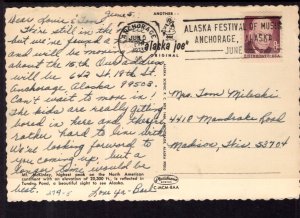 ANOTHER
Dear Louie & Jones.
There still in this town
but we've found a house
and will be moving
about the 15th. Our address
will be 642 St. 19th St.
Anchorage, Alaska 99503
Can't wait to move in! The
kids are really getting
bored in here and there's
rather hard to live with.
We're looking forward to
you coming up, but a
time would be
best.
Love ya - Barb
ANCHORAGE
JUN
"alaska joe"
ORIGINAL
ALASKA FESTIVAL OF MUSIC
ANCHORAGE, ALASKA
JUNE
Mrs. Tom Mileski
4418 Mandrake Road
Madison, Wis. 53704
Mt. McKinley, highest peak on the North American
continent with an elevation of 20,300 ft., is reflected in
Tundra Pond, a beautiful sight to see Alaska.
C-MCM-8AA